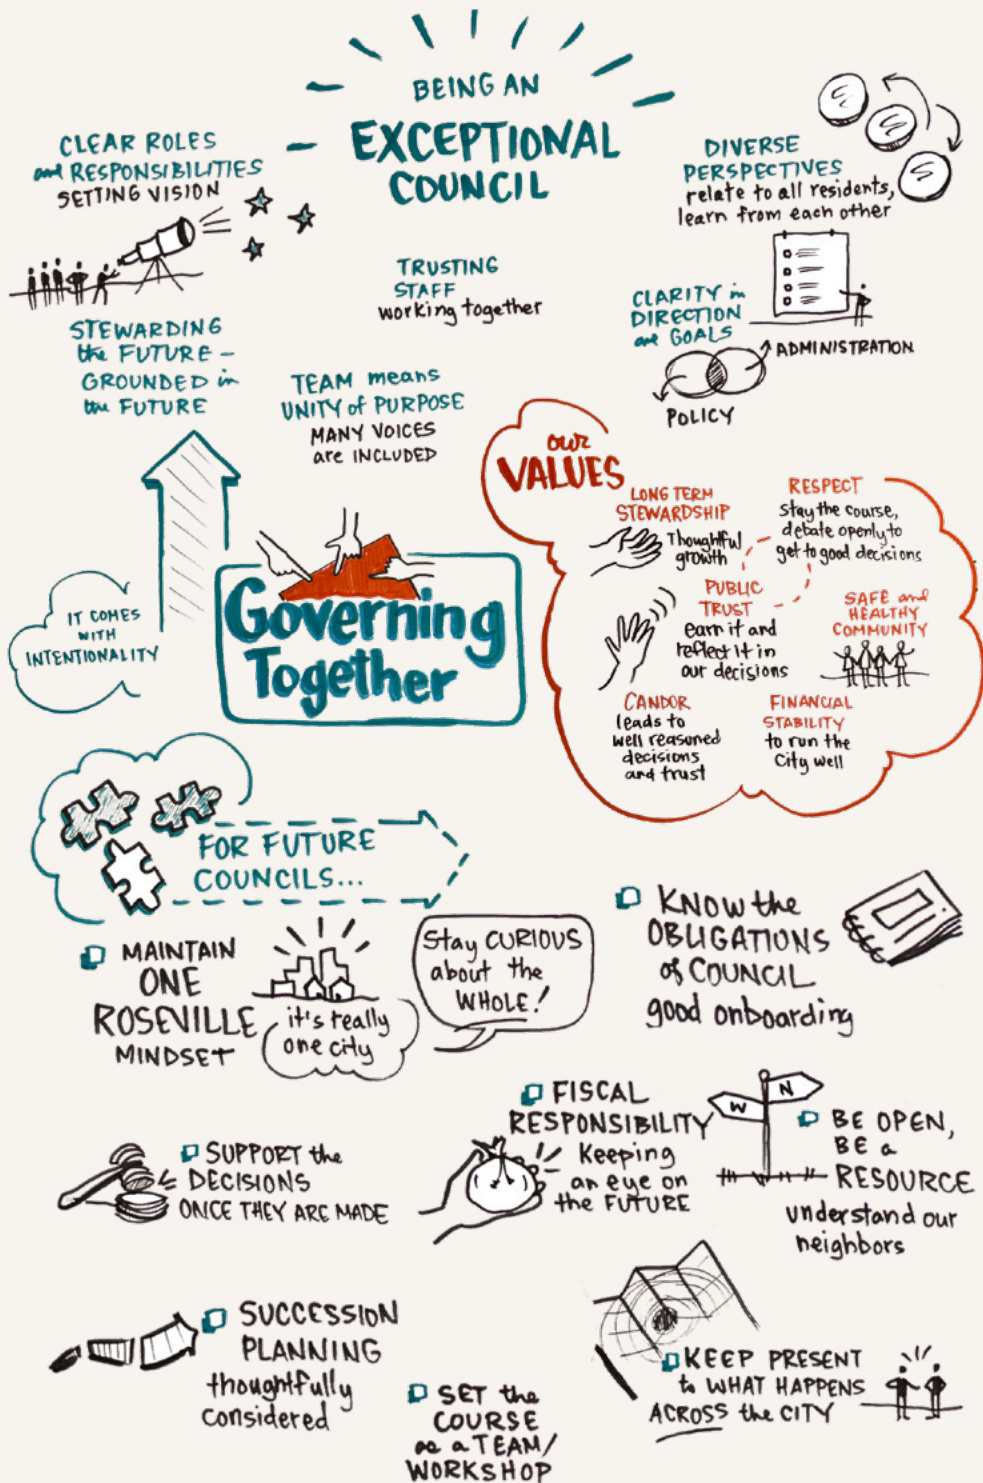 BEING AN
EXCEPTIONAL
COUNCIL
CLEAR ROLES
and RESPONSIBILITIES
SETTING VISION
DIVERSE
PERSPECTIVES
relate to all residents,
learn from each other
TRUSTING
STAFF
working together
CLARITY in
DIRECTION
and GOALS
ADMINISTRATION
POLICY
STEWARDING
the FUTURE –
GROUNDED in
the FUTURE
TEAM means
UNITY of PURPOSE
MANY VOICES
are INCLUDED
IT COMES
WITH
INTENTIONALITY
Governing
Together
our
VALUES
LONG TERM
STEWARDSHIP
Thoughtful
growth
RESPECT
Stay the course,
debate openly to
get to good decisions
PUBLIC
TRUST
earn it and
reflect it in
our decisions
SAFE and
HEALTHY
COMMUNITY
CANDOR
leads to
well reasoned
decisions
and trust
FINANCIAL
STABILITY
to run the
City well
FOR FUTURE
COUNCILS...
MAINTAIN
ONE
ROSEVILLE
MINDSET
it's really
one city
Stay CURIOUS
about the
WHOLE!
KNOW the
OBLIGATIONS
of COUNCIL
good onboarding
SUPPORT the
DECISIONS
ONCE THEY ARE MADE
FISCAL
RESPONSIBILITY
Keeping
an eye on
the FUTURE
W
N
BE OPEN,
BE a
RESOURCE
understand our
neighbors
SUCCESSION
PLANNING
thoughtfully
considered
SET the
COURSE
as a TEAM/
WORKSHOP
KEEP PRESENT
to WHAT HAPPENS
ACROSS the CITY